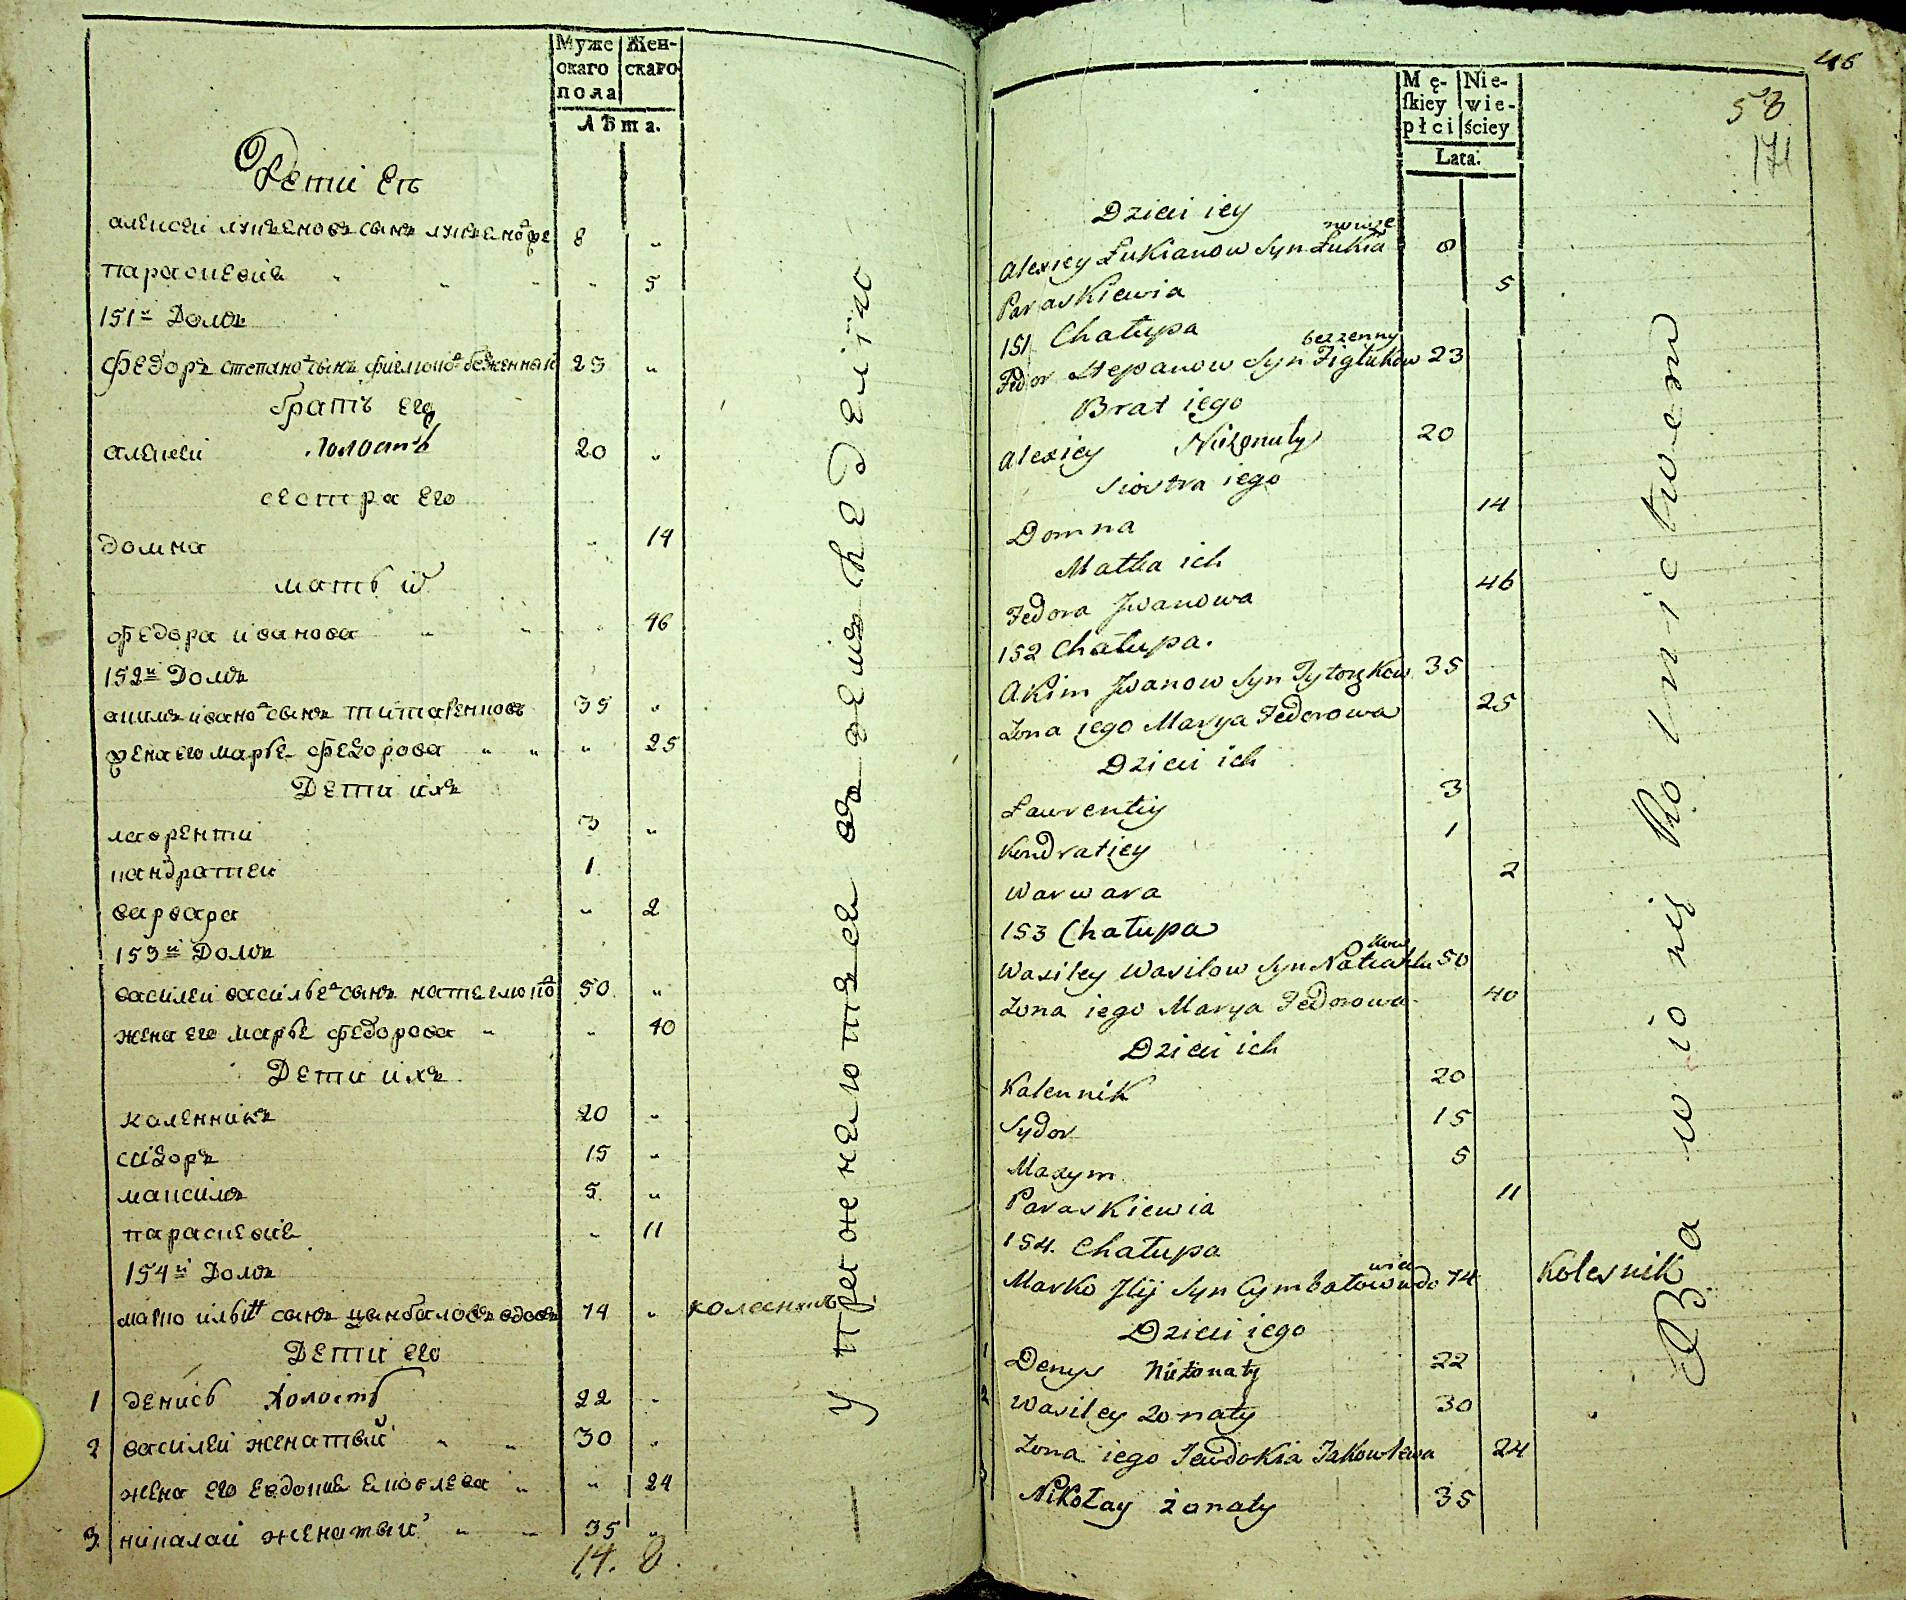 Муже Жен-
скаго скаго
пола
Лѣта.
Дети еъ
алексеи лукьеновъ сынъ лукьено 8 „
параскевие „ 5
151й Домъ
федоръ степано сынъ безженный 23 „
братъ его
алексеи холостъ 20 „
сестра его
домна „ 14
мать их
федора иванова „ 46
152й Домъ
акимъ ивано сынъ титаренковъ 35 „
жена его марье федорова „ 25
Дети ихъ
лаврентии 3 „
кандратеи 1
варвара „ 2
153й Домъ
василеи василье сынъ 50 „
жена его марье федорова „ 40
Дети ихъ
каленникъ 20 „
сидоръ 15 „
максимъ 5 „
параскевие „ 11
154й Домъ
марко ильи сынъ цымбаловъ вдовъ 74 „ колесникъ
Дети его
1 денисъ холостъ 22 „
2 василеи женатый 30 „
жена его евдокие ековлева „ 24
3 николаи женатый 35 „
14. 8.
упрожнеютъсе въ земле
46
53
171
Mę- Nie-
skiey wie-
płci ściey
Lata.
Dzieci iey
Alexiey Łukianow Syn Łukia nowže 8
Paraskiewia 5
151 Chałupa
Fedor Stepanow Syn Figlukow bezzenny 23
Brat iego
Alexiey Nieżonaty 20
Siostra iego
Domna 14
Matka ich
Fedora Jwanowa 46
152 Chałupa.
Akim Jwanow Syn Tytorenkow 35
Żona iego Marya Fedorowa 25
Dzieci ich
Ławrentiy 3
Kondratiey 1
Warwara 2
153 Chałupa
Wasiley Wasilow Syn 50
Żona iego Marya Fedorowa 40
Dzieci ich
Kalennik 20
Sydor 15
Maxym 5
Paraskiewia 11
154. Chałupa
Marko Jlij Syn Cymbałow wdo wiec 74 Kolesnik
Dzieci iego
1 Denys Nieżonaty 22
2 Wasiley Żonaty 30
Żona iego Jewdokia Jakowlewa 24
3 Nikołay żonaty 35
Bawio się Rolnictwem